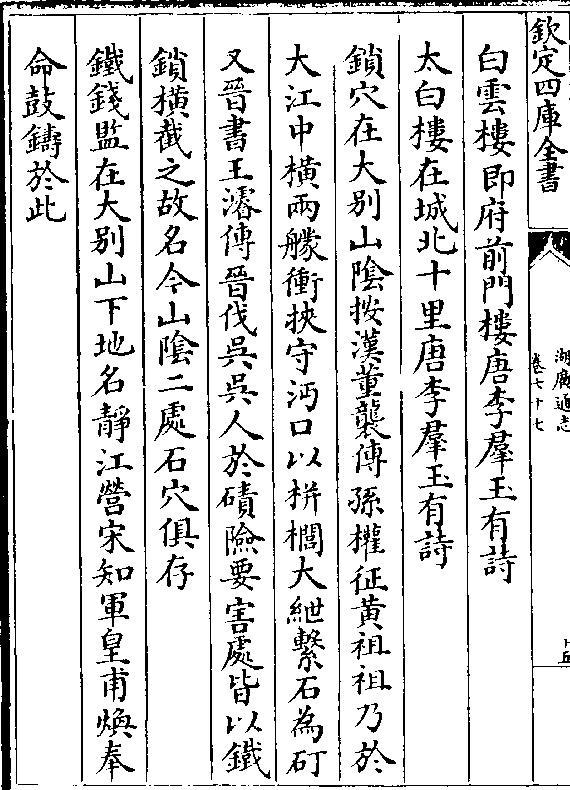 欽定四庫全書
湖廣通志
卷七十七
白雲樓即府前門樓唐李羣玉有詩
太白樓在城北十里唐李羣玉有詩
鎖穴在大别山陰按漢董襲傳孫權征黄祖祖乃於
大江中橫兩艨衝挾守沔口以栟櫚大紲繫石為矴
又晉書王濬傳晉伐吳吳人於磧險要害處皆以鐵
鎖橫截之故名今山陰二處石穴俱存
鐵錢監在大别山下地名靜江營宋知軍皇甫煥奉
命鼓鑄於此